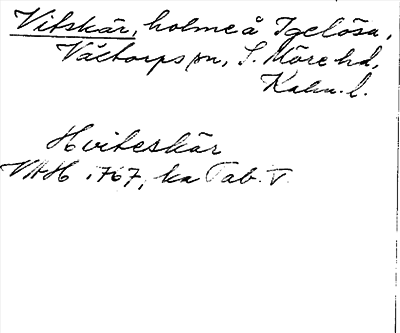 Vitskär, holme å Igelösa,
Våctorps sn, S. Möre hd,
Kalm. l.
Hviteskär
VAH 1767, ka Tab. V.